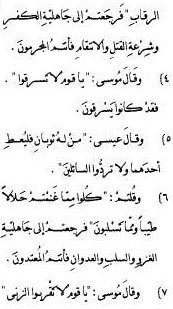 الرقاب" فرجعتم إلى جاهلية الكفر
وشرعة القتل والانتقام فأنتم المجرمون.
٤) وقال موسى : "يا قوم لا تسرقوا".
فقد كانوا يسرقون.
٥) وقال عيسى : "من له ثوبان فليعط
أحدهما ولا تردّوا السائلين"
٦) وقلتم : "كلوا مما غنمتم حلالاً
طيّباً ومما تسلبون" فرجعتم إلى جاهلية
الغزو والسلب والعدوان فأنتم المعتدون.
٧) وقال موسى : "يا قوم لا تقربوا الزنى"